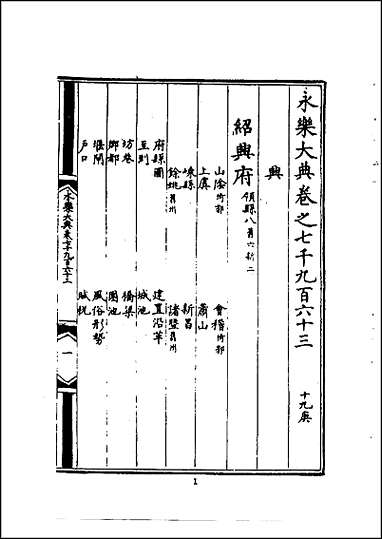 永樂大典卷之七千九百六十三 十九庚
興
紹興府 領縣八舊六新二
山陰附郭 會稽附郭
上虞 蕭山
嵊縣 新昌
餘姚舊州 諸暨舊州
府縣圖 建置沿革
至到 城池
坊巷 橋梁
鄉都 園池
堰閘 風俗形勢
戶口 賦稅
永樂大典卷七千九百六十三
一
1